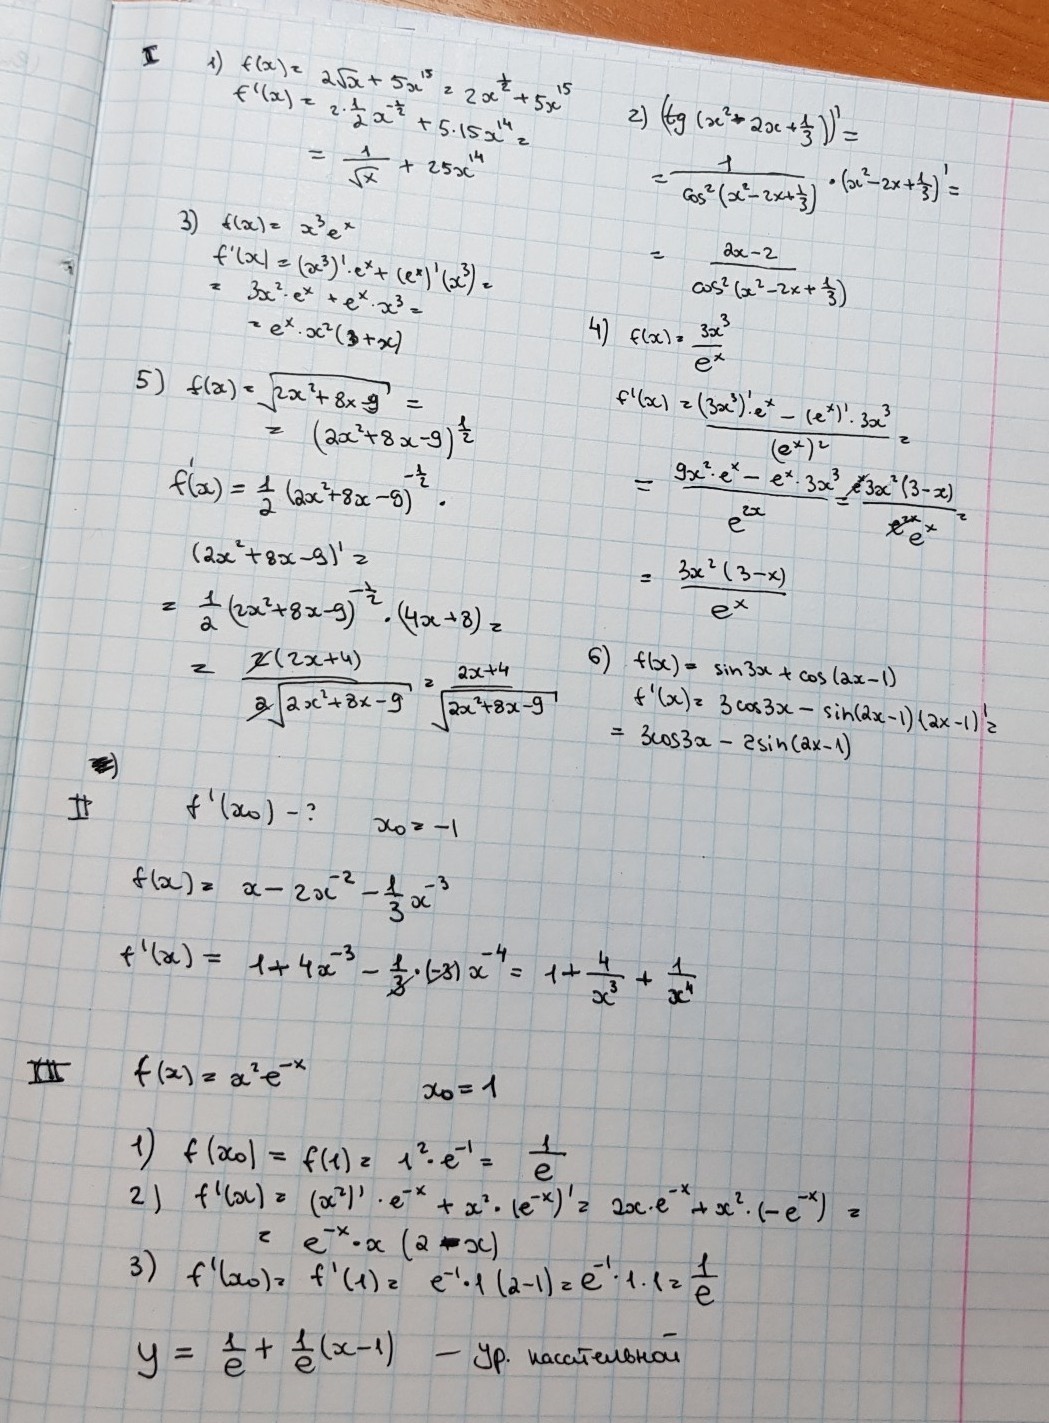 I
1) f(x) = 2√x + 5x^15 = 2x^(1/2) + 5x^15
f'(x) = 2·1/2 x^(-1/2) + 5·15x^14 =
= 1/√x + 25x^14
2) (tg(x² - 2x + 1/3))' =
= 1/cos²(x² - 2x + 1/3) · (x² - 2x + 1/3)' =
= (2x - 2)/cos²(x² - 2x + 1/3)
3) f(x) = x³e^x
f'(x) = (x³)'·e^x + (e^x)'(x³) =
= 3x²·e^x + e^x·x³ =
= e^x·x²(3 + x)
4) f(x) = 3x³/e^x
f'(x) = ((3x³)'·e^x - (e^x)'·3x³)/(e^x)² =
= (9x²·e^x - e^x·3x³)/e^(2x) = e^x 3x²(3 - x)/e^(2x) e^x =
= 3x²(3 - x)/e^x
5) f(x) = √(2x² + 8x - 9) =
= (2x² + 8x - 9)^(1/2)
f'(x) = 1/2 (2x² + 8x - 9)^(-1/2) ·
(2x² + 8x - 9)' =
= 1/2 (2x² + 8x - 9)^(-1/2) · (4x + 8) =
= 2(2x + 4)/2√(2x² + 8x - 9) = (2x + 4)/√(2x² + 8x - 9)
6) f(x) = sin3x + cos(2x - 1)
f'(x) = 3cos3x - sin(2x - 1)(2x - 1)' =
= 3cos3x - 2sin(2x - 1)
II f'(x₀) - ? x₀ = -1
f(x) = x - 2x^(-2) - 1/3 x^(-3)
f'(x) = 1 + 4x^(-3) - 1/3·(-3)x^(-4) = 1 + 4/x³ + 1/x⁴
III f(x) = x²e^(-x) x₀ = 1
1) f(x₀) = f(1) = 1²·e^(-1) = 1/e
2) f'(x) = (x²)'·e^(-x) + x²·(e^(-x))' = 2x·e^(-x) + x²·(-e^(-x)) =
= e^(-x)·x(2 - x)
3) f'(x₀) = f'(1) = e^(-1)·1(2 - 1) = e^(-1)·1·1 = 1/e
y = 1/e + 1/e(x - 1) - ур. касательной